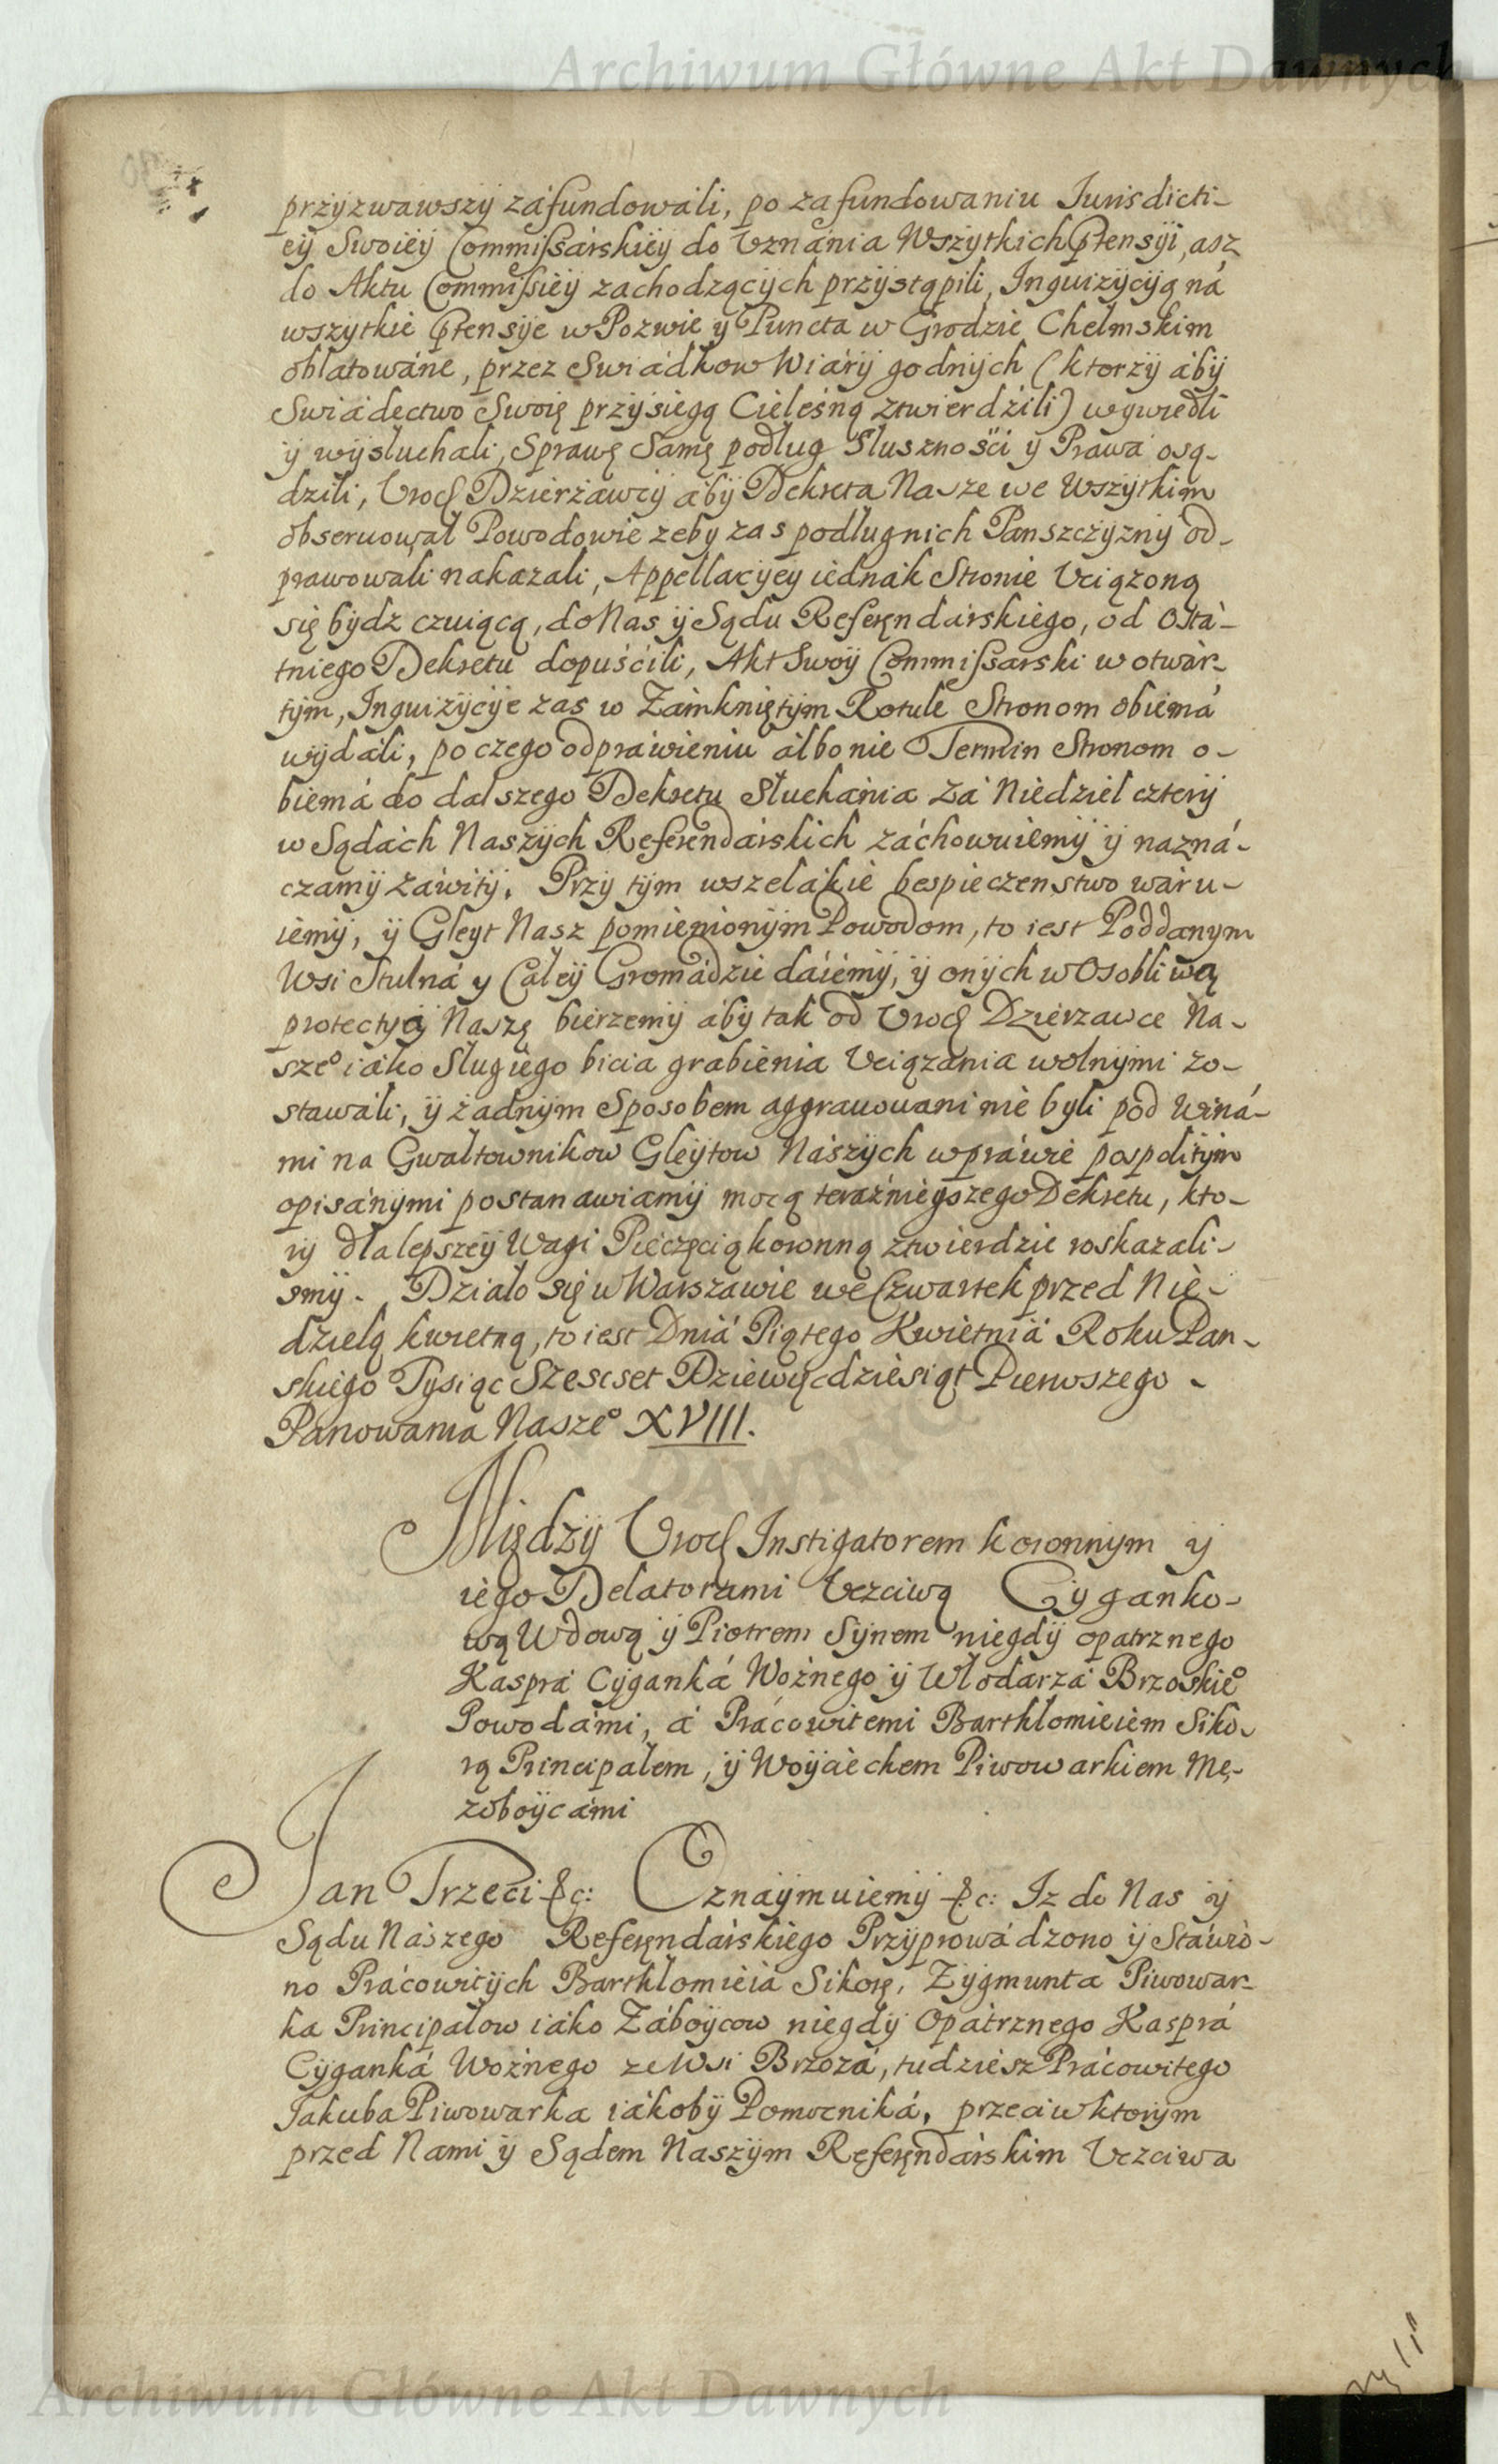 Archiwum Główne Akt Dawnych
przyzwawszÿ záfundowali, po zafundowaniu Iurisdicti-
eÿ Swoieÿ Commißárskieÿ do Vznánia Wszÿtkich Ptensÿi, asz
do Aktu Commißieÿ zachodzącÿch przÿstąpili, Inquizÿcÿą ná
wszÿtkie Ptensÿe w Pozwie ÿ Puncta w Grodzie Chelmskim
oblatowáne, przez Swiádkow Wiárÿ godnÿch (ktorzÿ ábÿ
Swiádectwo Swoię przÿsięgą Cieleśną ztwierdzili) wywiedli
ÿ wÿsluchali, Sprawę Samę podlug Slusznośći ÿ Prawá osą-
dzili, Vrod Dzierżawcÿ ábÿ Dekreta Nasze we Wszÿtkim
obseruował Powodowie zeby zas podlug nich Panszczÿznÿ od-
prawowali nakazali, Appellacÿeÿ iednák Stronie Vciązoną
się bÿdz czuiącą, do Nas ÿ Sądu Referendárskiego, od Ostá-
tniego Dekretu dopuśćili, Akt Swoÿ Commißarski w otwár-
tÿm, Inquizÿcÿe zas w Zámkniętÿm Rotule Stronom obiemá
wÿdáli, po czego odpráwieniu álbo nie Termin Stronom o-
biemá do dalszego Dekretu Słuchánia Zá Niedziel czterÿ
w Sądách Naszÿch Referendárskich záchowuiemÿ ÿ nazná-
czamÿ záwitÿ. Przÿ tÿm wszelákie bespieczenstwo wáru-
iemÿ, ÿ Gleyt Nasz pomienionÿm Powodom, to iest Poddanym
Wsi Stulná y Całeÿ Gromádzie dáiemÿ, ÿ onÿch w Osobliwą
protectÿą Naszę bierzemÿ ábÿ tak od Vrod Dzierzawce Na-
sze° iáko Slugiego bicia grabienia Vciązánia wolnÿmi zo-
stawáli, ÿ żadnÿm Sposobem aggrauouani nie byli pod winá-
mi na Gwałtownikow Gleÿtow Nászÿch w práwie pospolitÿm
opisánymi postanawiamÿ mocą teraźnieÿszego Dekretu, kto-
rÿ dla lepszeÿ Wagi Pieczęcią koronną ztwierdzic roskazali-
smÿ. Działo się w Warszawie we Czwartek przed Nie-
dzielą kwietną, to iest Dniá Piątego Kwietniá Roku Pan-
skiego Tysiąc Szescset Dziewięcdziesiąt Pierwszego -
Panowania Nasze° XVIII.
Międzÿ Vrod Instigatorem koronnÿm ÿ
iego Delatorámi Vczciwą Cÿganko-
wą Wdową ÿ Piotrem Sÿnem niegdÿ opatrznego
Kasprá Cÿganká Woźnego ÿ Włodarzá Brzoskie°
Powodámi, á Prácowitemi Barthłomieiem Siko-
rą Principalem, ÿ Woÿćiechem Piwowarkiem Mę-
zoboÿcámi
Jan Trzeći &c: Oznaÿmuiemÿ &c: Iz do Nas ÿ
Sądu Nászego Referendárskiego Przÿprowádzono ÿ Stáwio-
no Prácowitÿch Barthłomieiá Sikorę, Zÿgmunta Piwowar-
ka Principałow iáko Záboÿcow niegdÿ Opátrznego Kasprá
Cÿganká Woźnego ze Wsi Brzozá, tudziesz Prácowitego
Jakuba Piwowarka iákobÿ Pomocniká, przeciw ktorÿm
przed Nami ÿ Sądem Naszÿm Referendárskim Vczciwa
Archiwum Główne Akt Dawnych